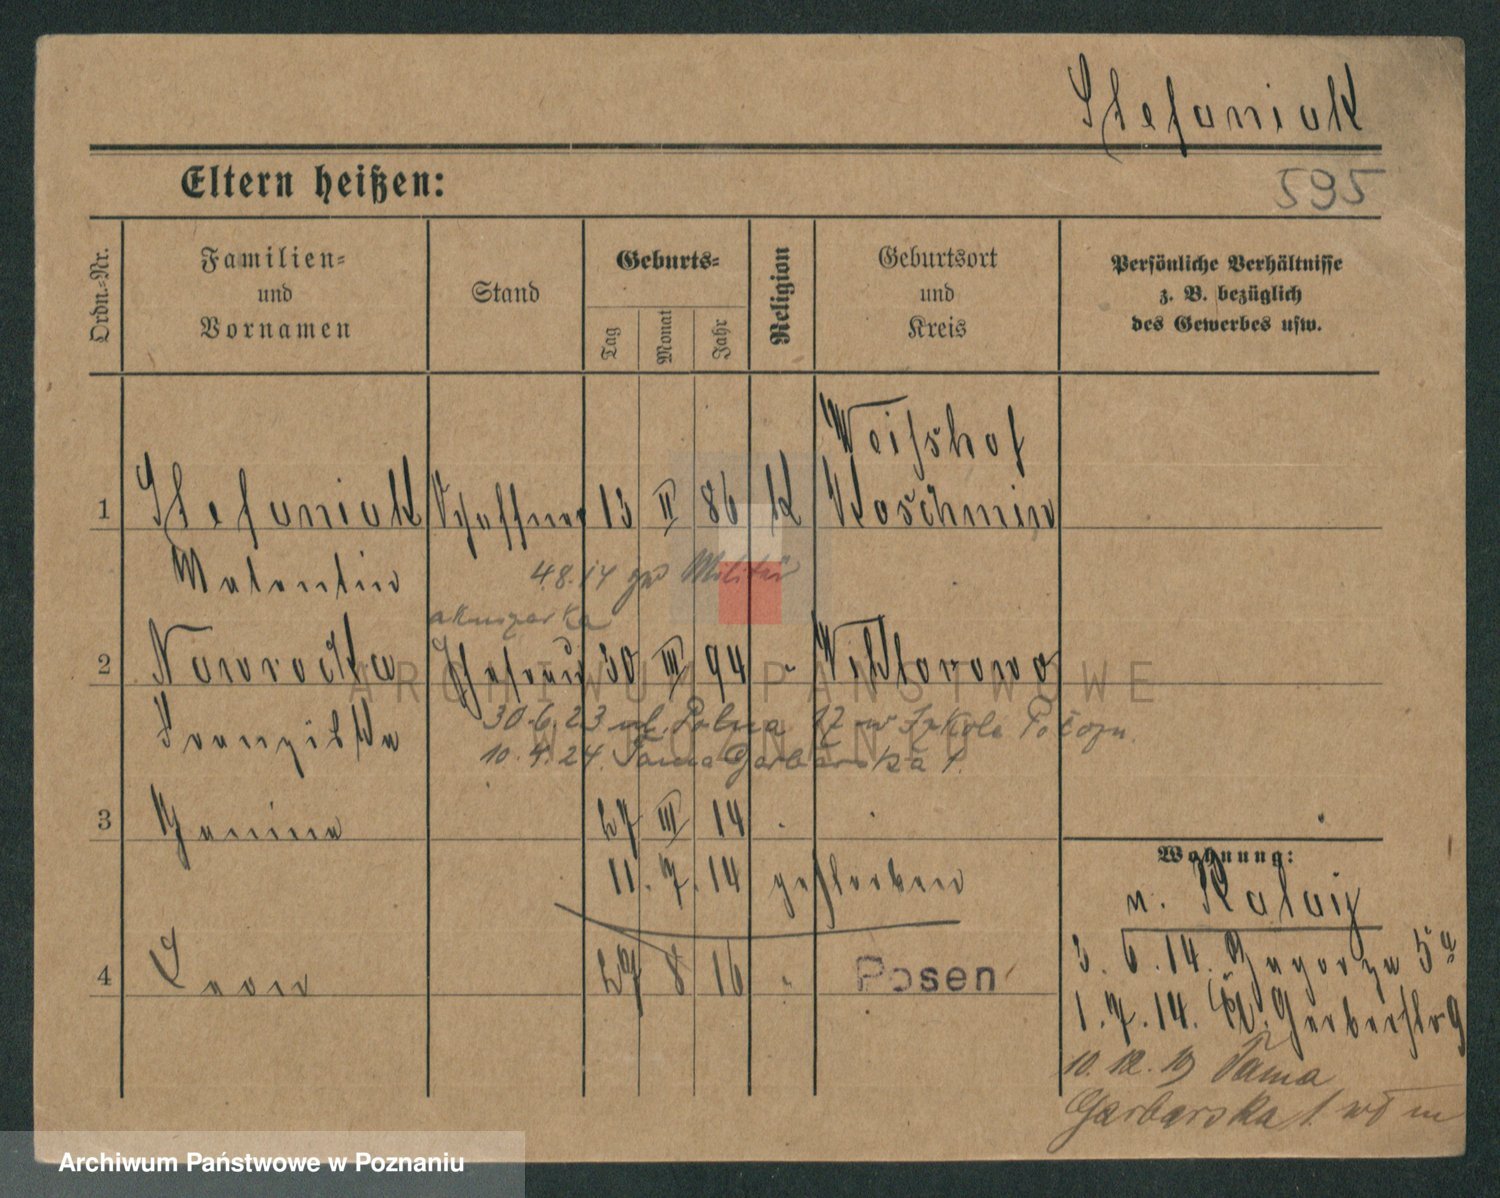 Stefaniak
Eltern heißen:
595
Ordn.-Nr.
Familien-
und
Vornamen
Stand
Geburts-
Tag
Monat
Jahr
Religion
Geburtsort
und
Kreis
Persönliche Verhältnisse
z. B. bezüglich
des Gewerbes usw.
Weißhof
1 Stefaniak Schaffner 13 II 86 K Koschmin
Valentin
4.8.14 zu Militär
akuszerka
2 Nawrocka Ehefrau 30 III 94 " Wiktorowo
Franziska
30.6.23 ul. Polna 17 w Szkole Położn.
10.4.24. Tama Garbarska 1.
3 Janina 27 III 14
11.7.14 gestorben
Wohnung:
n.
4 Leon 27 8 16 " Posen
3.6.14. Zagorze 5a
1.7.14. Kl. Gerberstr 9
10.12.19 Tama
Garbarska 1.
ARCHIWUM PAŃSTWOWE
W POZNANIU
Archiwum Państwowe w Poznaniu